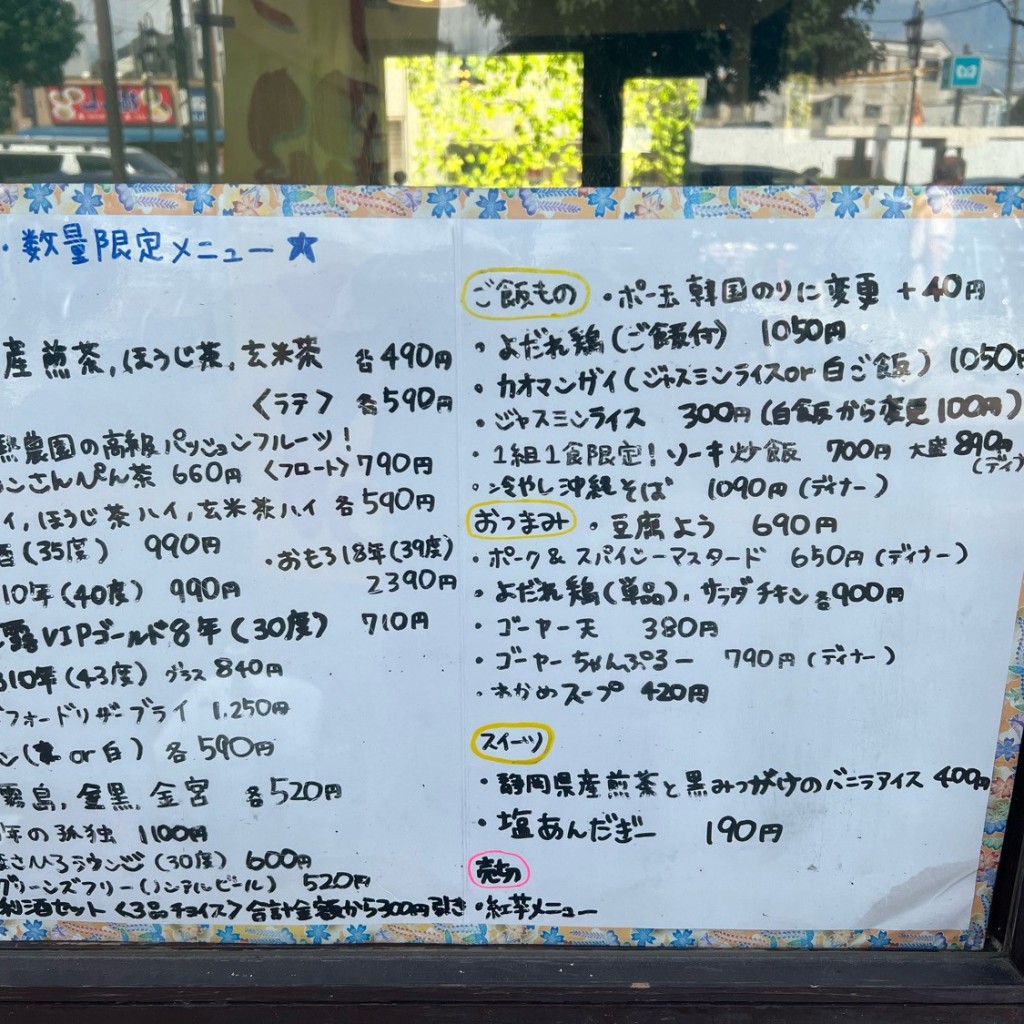 ・数量限定メニュー★
産煎茶,ほうじ茶,玄米茶 各490円
〈ラテ〉 各590円
農園の高級パッションフルーツ!
ンさんぴん茶 660円 〈フロート〉790円
イ,ほうじ茶ハイ,玄米茶ハイ 各590円
酒(35度) 990円
・おもろ18年(39度)
2390円
10年(40度) 990円
露VIPゴールド8年(30度) 710円
10年(43度) グラス 840円
フォードリザーブライ 1,250円
ン( or 白) 各590円
霧島,金黒,金宮 各520円
年の孤独 1100円
ざさひろラウンジ(30度) 600円
グリーンズフリー(ノンアルビール) 520円
利酒セット〈3品チョイス〉合計金額から300円引き
ご飯もの ・ポー玉 韓国のりに変更 +40円
・よだれ鶏(ご飯付) 1050円
・カオマンガイ(ジャスミンライスor白ご飯) 1050円
・ジャスミンライス 300円(白飯から変更100円)
・1組1食限定!ソーキ炒飯 700円 大盛890円
(ディナ
・冷やし沖縄そば 1090円(ディナー)
おつまみ ・豆腐よう 690円
・ポーク&スパイシーマスタード 650円(ディナー)
・よだれ鶏(単品),サラダチキン各900円
・ゴーヤー天 380円
・ゴーヤーちゃんぷるー 790円(ディナー)
・わかめスープ 420円
スイーツ
・静岡県産煎茶と黒みつがけのバニラアイス 400円
・塩あんだぎー 190円
売切
・紅芋メニュー